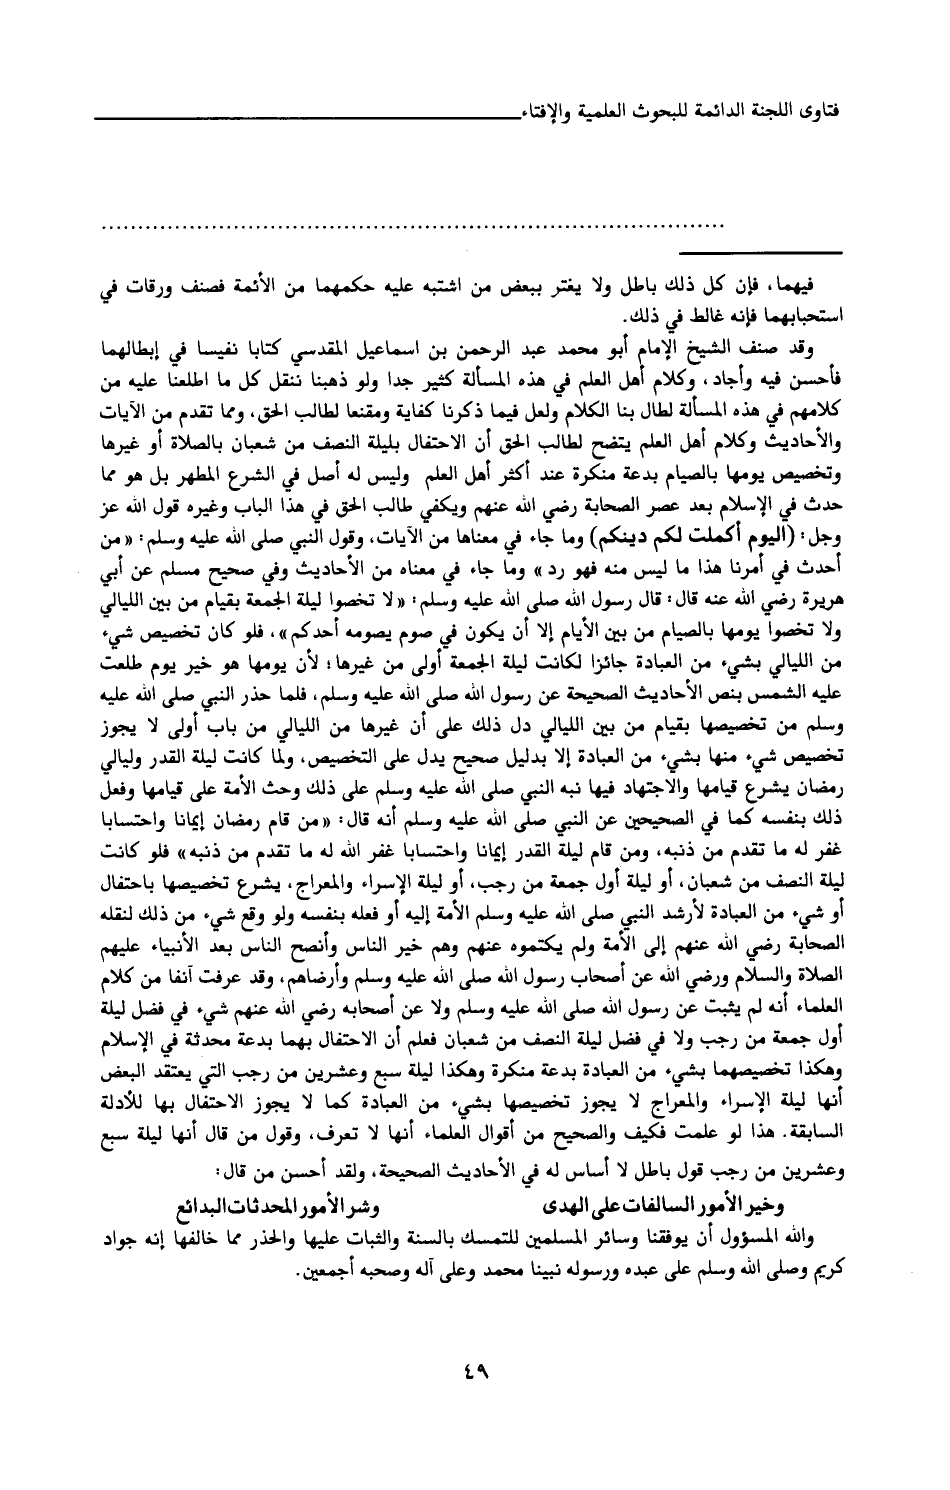 فتاوى اللجنة الدائمة للبحوث العلمية والإفتاء
فيهما، فإن كل ذلك باطل ولا يغتر ببعض من اشتبه عليه حكمهما من الأئمة فصنف ورقات في
استحبابهما فإنه غالط في ذلك.
وقد صنف الشيخ الإمام أبو محمد عبد الرحمن بن اسماعيل المقدسي كتابا نفيسا في إبطالهما
فأحسن فيه وأجاد، وكلام أهل العلم في هذه المسألة كثير جدا ولو ذهبنا ننقل كل ما اطلعنا عليه من
كلامهم في هذه المسألة لطال بنا الكلام ولعل فيما ذكرنا كفاية ومقنعا لطالب الحق، ومما تقدم من الآيات
والأحاديث وكلام أهل العلم يتضح لطالب الحق أن الاحتفال بليلة النصف من شعبان بالصلاة أو غيرها
وتخصيص يومها بالصيام بدعة منكرة عند أكثر أهل العلم وليس له أصل في الشرع المطهر بل هو مما
حدث في الإسلام بعد عصر الصحابة رضي الله عنهم ويكفي طالب الحق في هذا الباب وغيره قول الله عز
وجل: (اليوم أكملت لكم دينكم) وما جاء في معناها من الآيات، وقول النبي صلى الله عليه وسلم: «من
أحدث في أمرنا هذا ما ليس منه فهو رد» وما جاء في معناه من الأحاديث وفي صحيح مسلم عن أبي
هريرة رضي الله عنه قال: قال رسول الله صلى الله عليه وسلم: «لا تخصوا ليلة الجمعة بقيام من بين الليالي
ولا تخصوا يومها بالصيام من بين الأيام إلا أن يكون في صوم يصومه أحدكم»، فلو كان تخصيص شيء
من الليالي بشيء من العبادة جائزا لكانت ليلة الجمعة أولى من غيرها؛ لأن يومها هو خير يوم طلعت
عليه الشمس بنص الأحاديث الصحيحة عن رسول الله صلى الله عليه وسلم، فلما حذر النبي صلى الله عليه
وسلم من تخصيصها بقيام من بين الليالي دل ذلك على أن غيرها من الليالي من باب أولى لا يجوز
تخصيص شيء منها بشيء من العبادة إلا بدليل صحيح يدل على التخصيص، ولما كانت ليلة القدر وليالي
رمضان يشرع قيامها والاجتهاد فيها نبه النبي صلى الله عليه وسلم على ذلك وحث الأمة على قيامها وفعل
ذلك بنفسه كما في الصحيحين عن النبي صلى الله عليه وسلم أنه قال: «من قام رمضان إيمانا واحتسابا
غفر له ما تقدم من ذنبه، ومن قام ليلة القدر إيمانا واحتسابا غفر الله له ما تقدم من ذنبه» فلو كانت
ليلة النصف من شعبان، أو ليلة أول جمعة من رجب، أو ليلة الإسراء والمعراج، يشرع تخصيصها باحتفال
أو شيء من العبادة لأرشد النبي صلى الله عليه وسلم الأمة إليه أو فعله بنفسه ولو وقع شيء من ذلك لنقله
الصحابة رضي الله عنهم إلى الأمة ولم يكتموه عنهم وهم خير الناس وأنصح الناس بعد الأنبياء عليهم
الصلاة والسلام ورضي الله عن أصحاب رسول الله صلى الله عليه وسلم وأرضاهم، وقد عرفت آنفا من كلام
العلماء أنه لم يثبت عن رسول الله صلى الله عليه وسلم ولا عن أصحابه رضي الله عنهم شيء في فضل ليلة
أول جمعة من رجب ولا في فضل ليلة النصف من شعبان فعلم أن الاحتفال بهما بدعة محدثة في الإسلام
وهكذا تخصيصهما بشيء من العبادة بدعة منكرة وهكذا ليلة سبع وعشرين من رجب التي يعتقد البعض
أنها ليلة الإسراء والمعراج لا يجوز تخصيصها بشيء من العبادة كما لا يجوز الاحتفال بها للأدلة
السابقة. هذا لو علمت فكيف والصحيح من أقوال العلماء أنها لا تعرف، وقول من قال أنها ليلة سبع
وعشرين من رجب قول باطل لا أساس له في الأحاديث الصحيحة، ولقد أحسن من قال:
وخير الأمور السالفات على الهدى وشر الأمور المحدثات البدائع
والله المسؤول أن يوفقنا وسائر المسلمين للتمسك بالسنة والثبات عليها والحذر مما خالفها إنه جواد
كريم وصلى الله وسلم على عبده ورسوله نبينا محمد وعلى آله وصحبه أجمعين.
٤٩